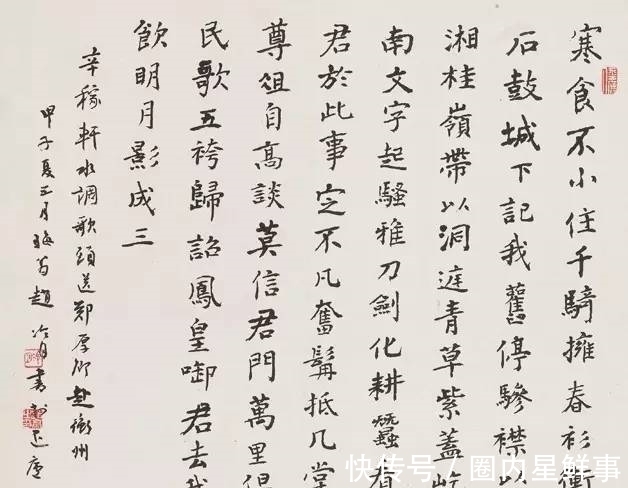 寒食不小住千騎擁春衫衡
石鼓城下記我舊停驂襟以
湘桂嶺帶以洞庭青草紫蓋屹
南文字起騷雅刀劍化耕蠶看
君於此事定不凡奮髯抵几堂
尊俎自高談莫信君門萬里
民歌五袴歸詔鳳皇啣君去我
飲明月影成三
辛稼軒水調歌頭送鄭厚卿赴衡州
甲子夏五月趙冷月書
快传号／圈内星鲜事